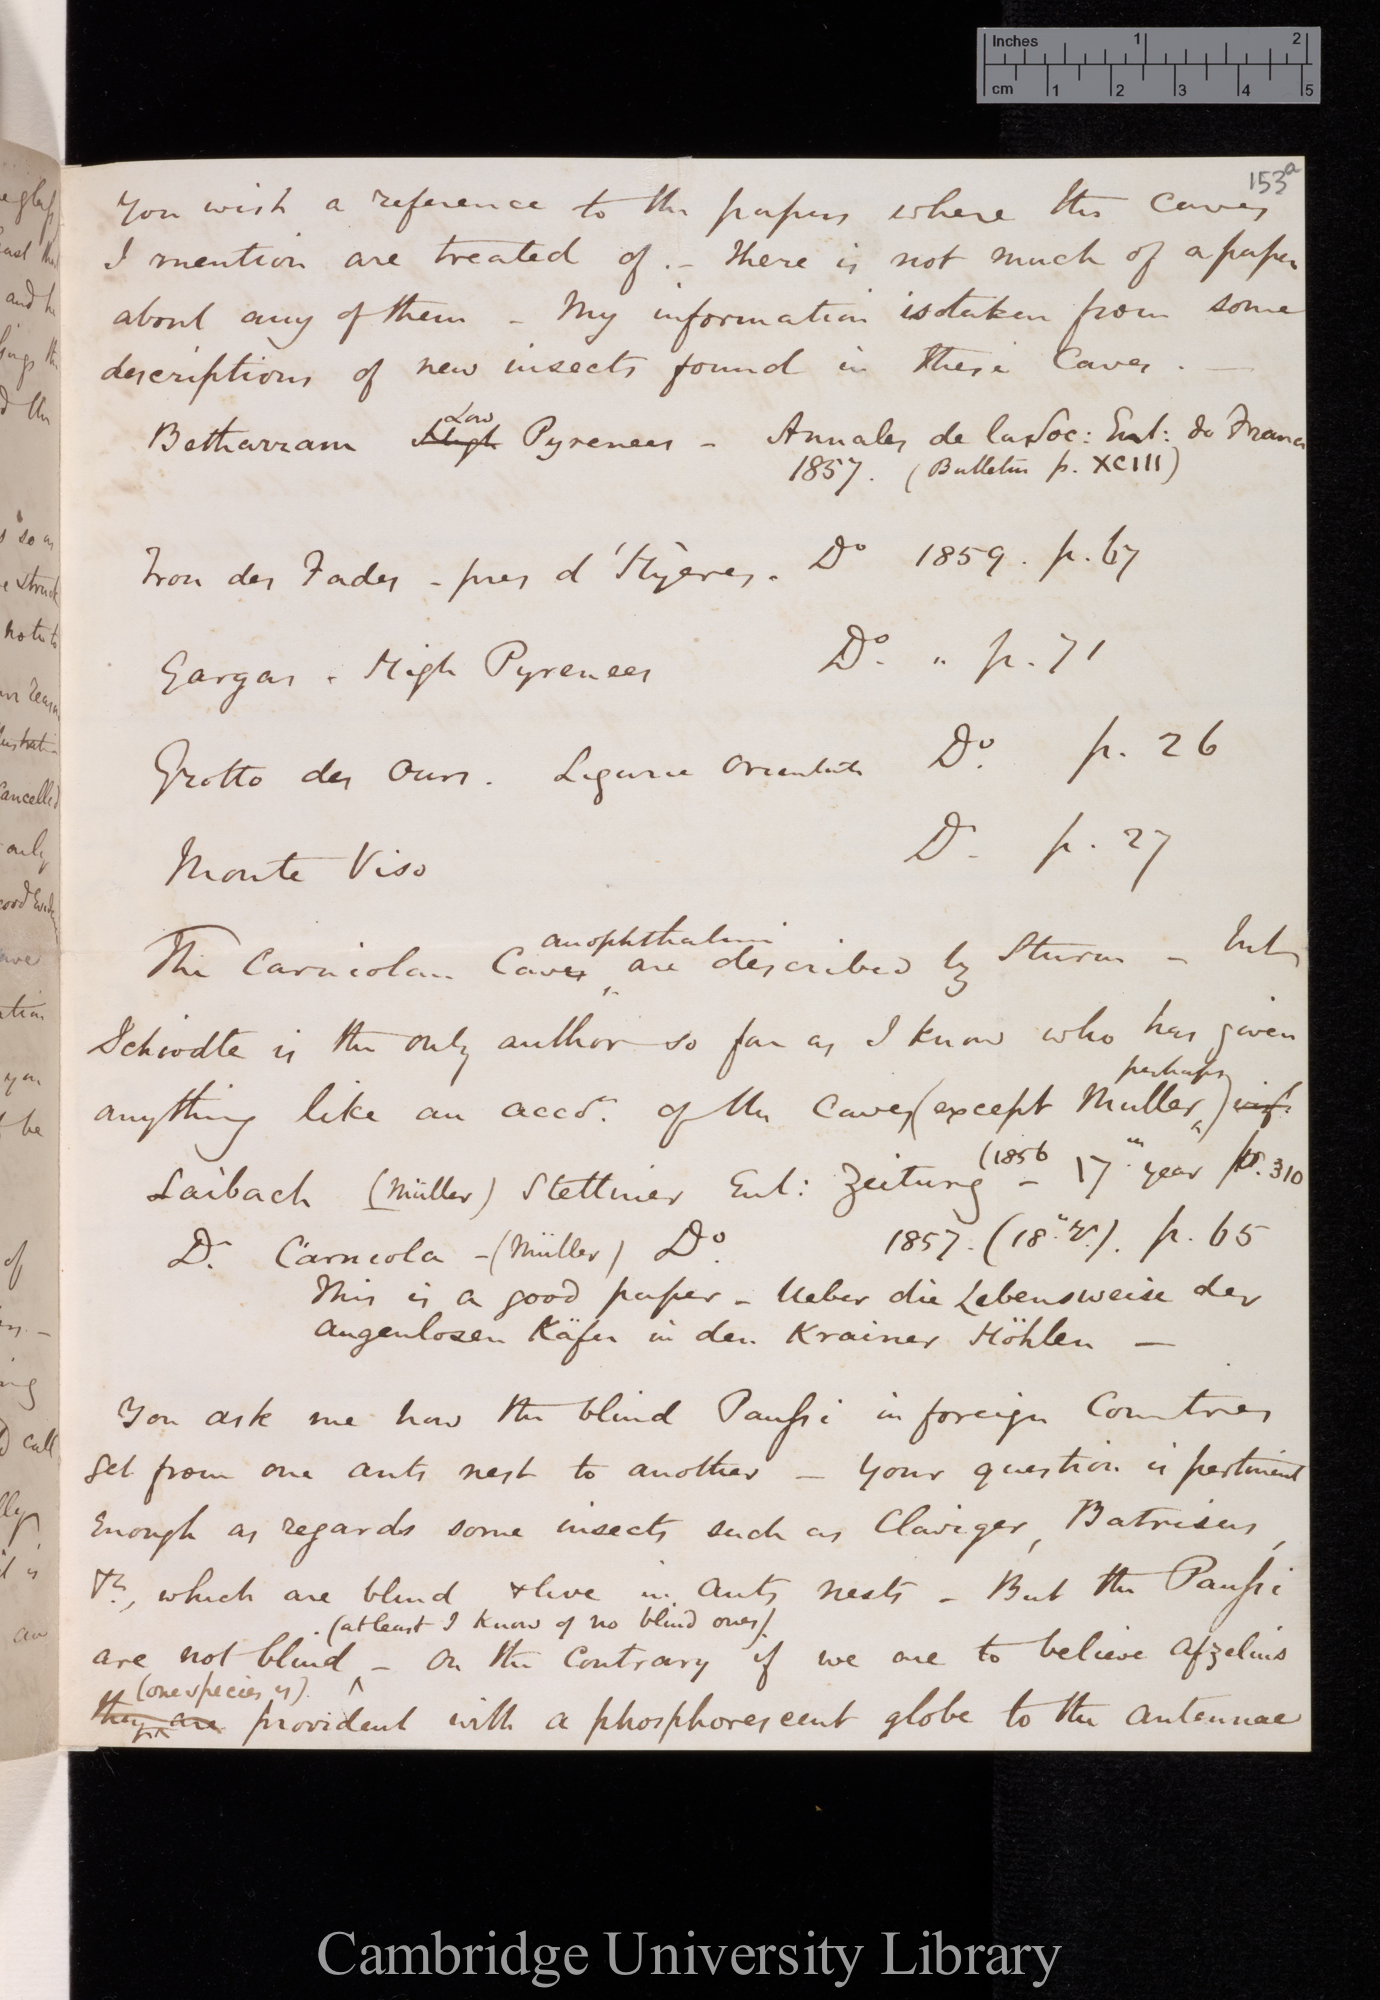 Inches 1 2
cm 1 2 3 4 5
153a
You wish a reference to the papers where the caves
I mention are treated of. – There is not much of a paper
about any of them – My information is taken from some
descriptions of new insects found in these Caves. —
Betharram High Low Pyrenees – Annales de la Soc: Ent: de France
1857. (Bulletin p. XCIII)
Trou des Fades – pres d'Hyères. Do 1859. p. 67
Gargas. High Pyrenees Do. " p. 71
Grotto des Ours. Ligurie Orientale Do. p. 26
Monte Viso Do. p. 27
anophthalmi
The Carniolan Caves are described by Sturm – but
Schiodte is the only author so far as I know who has given
perhaps
anything like an acct. of the Caves (except Muller)
Laibach (Müller) Stettiner Ent: Zeitung – (1856 17th year p. 310
Do. Carniola – (Müller) Do. 1857. (18th yr.). p. 65
This is a good paper – Ueber die Lebensweise der
augenlosen Käfer in den Krainer Höhlen —
You ask me how the blind Paussi in foreign Countries
get from one ants nest to another – Your question is pertinent
enough as regards some insects such as Claviger, Batrisus,
&c, which are blind & live in ants nests – But the Paussi
(at least I know of no blind ones).
are not blind – On the contrary if we are to believe Afzelius
(one species is).
they are provident with a phosphorescent globe to the antennae
Cambridge University Library